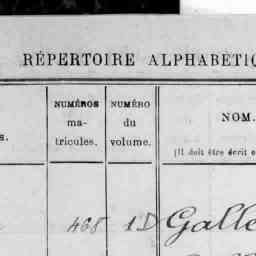 RÉPERTOIRE ALPHABÉTIQ
s.
NUMÉROS
ma-
tricules.
NUMÉRO
du
volume.
NOM.
(Il doit être écrit e
468 1D Galle